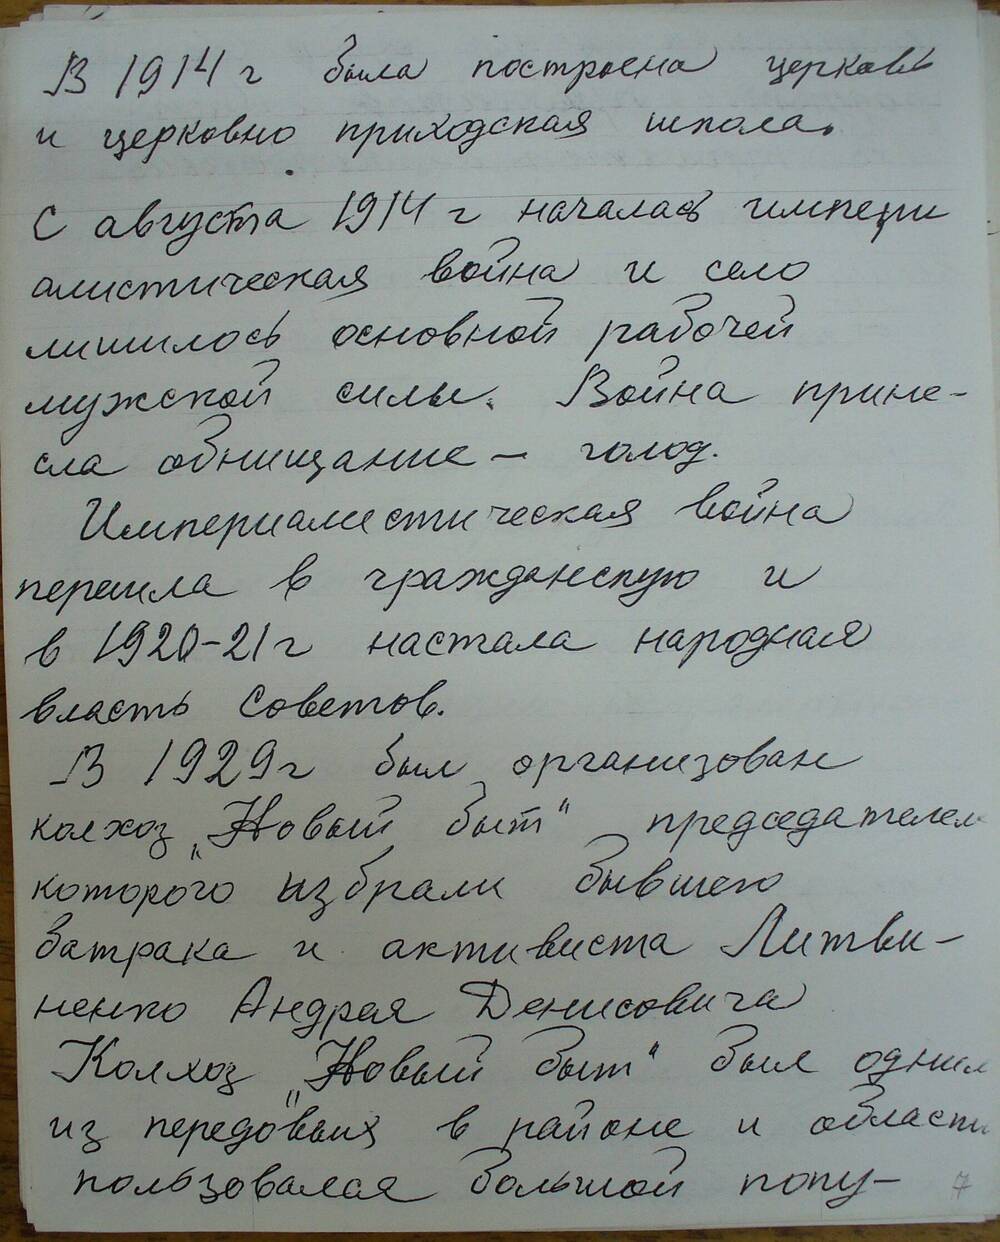 В 1914 г была построена церковь
и церковно приходская школа.
С августа 1914 г началась импери
алистическая война и село
лишилось основной рабочей
мужской силы. Война прине-
сла обнищание – голод.
Империалистическая война
перешла в гражданскую и
в 1920-21 г настала народная
власть Советов.
В 1929 г был организован
колхоз „Новый быт“ председателем
которого избрали бывшего
батрака и активиста Литви-
ненко Андрея Денисовича
Колхоз „Новый быт“ был одним
из передовых в районе и области
пользовался большой попу-
7